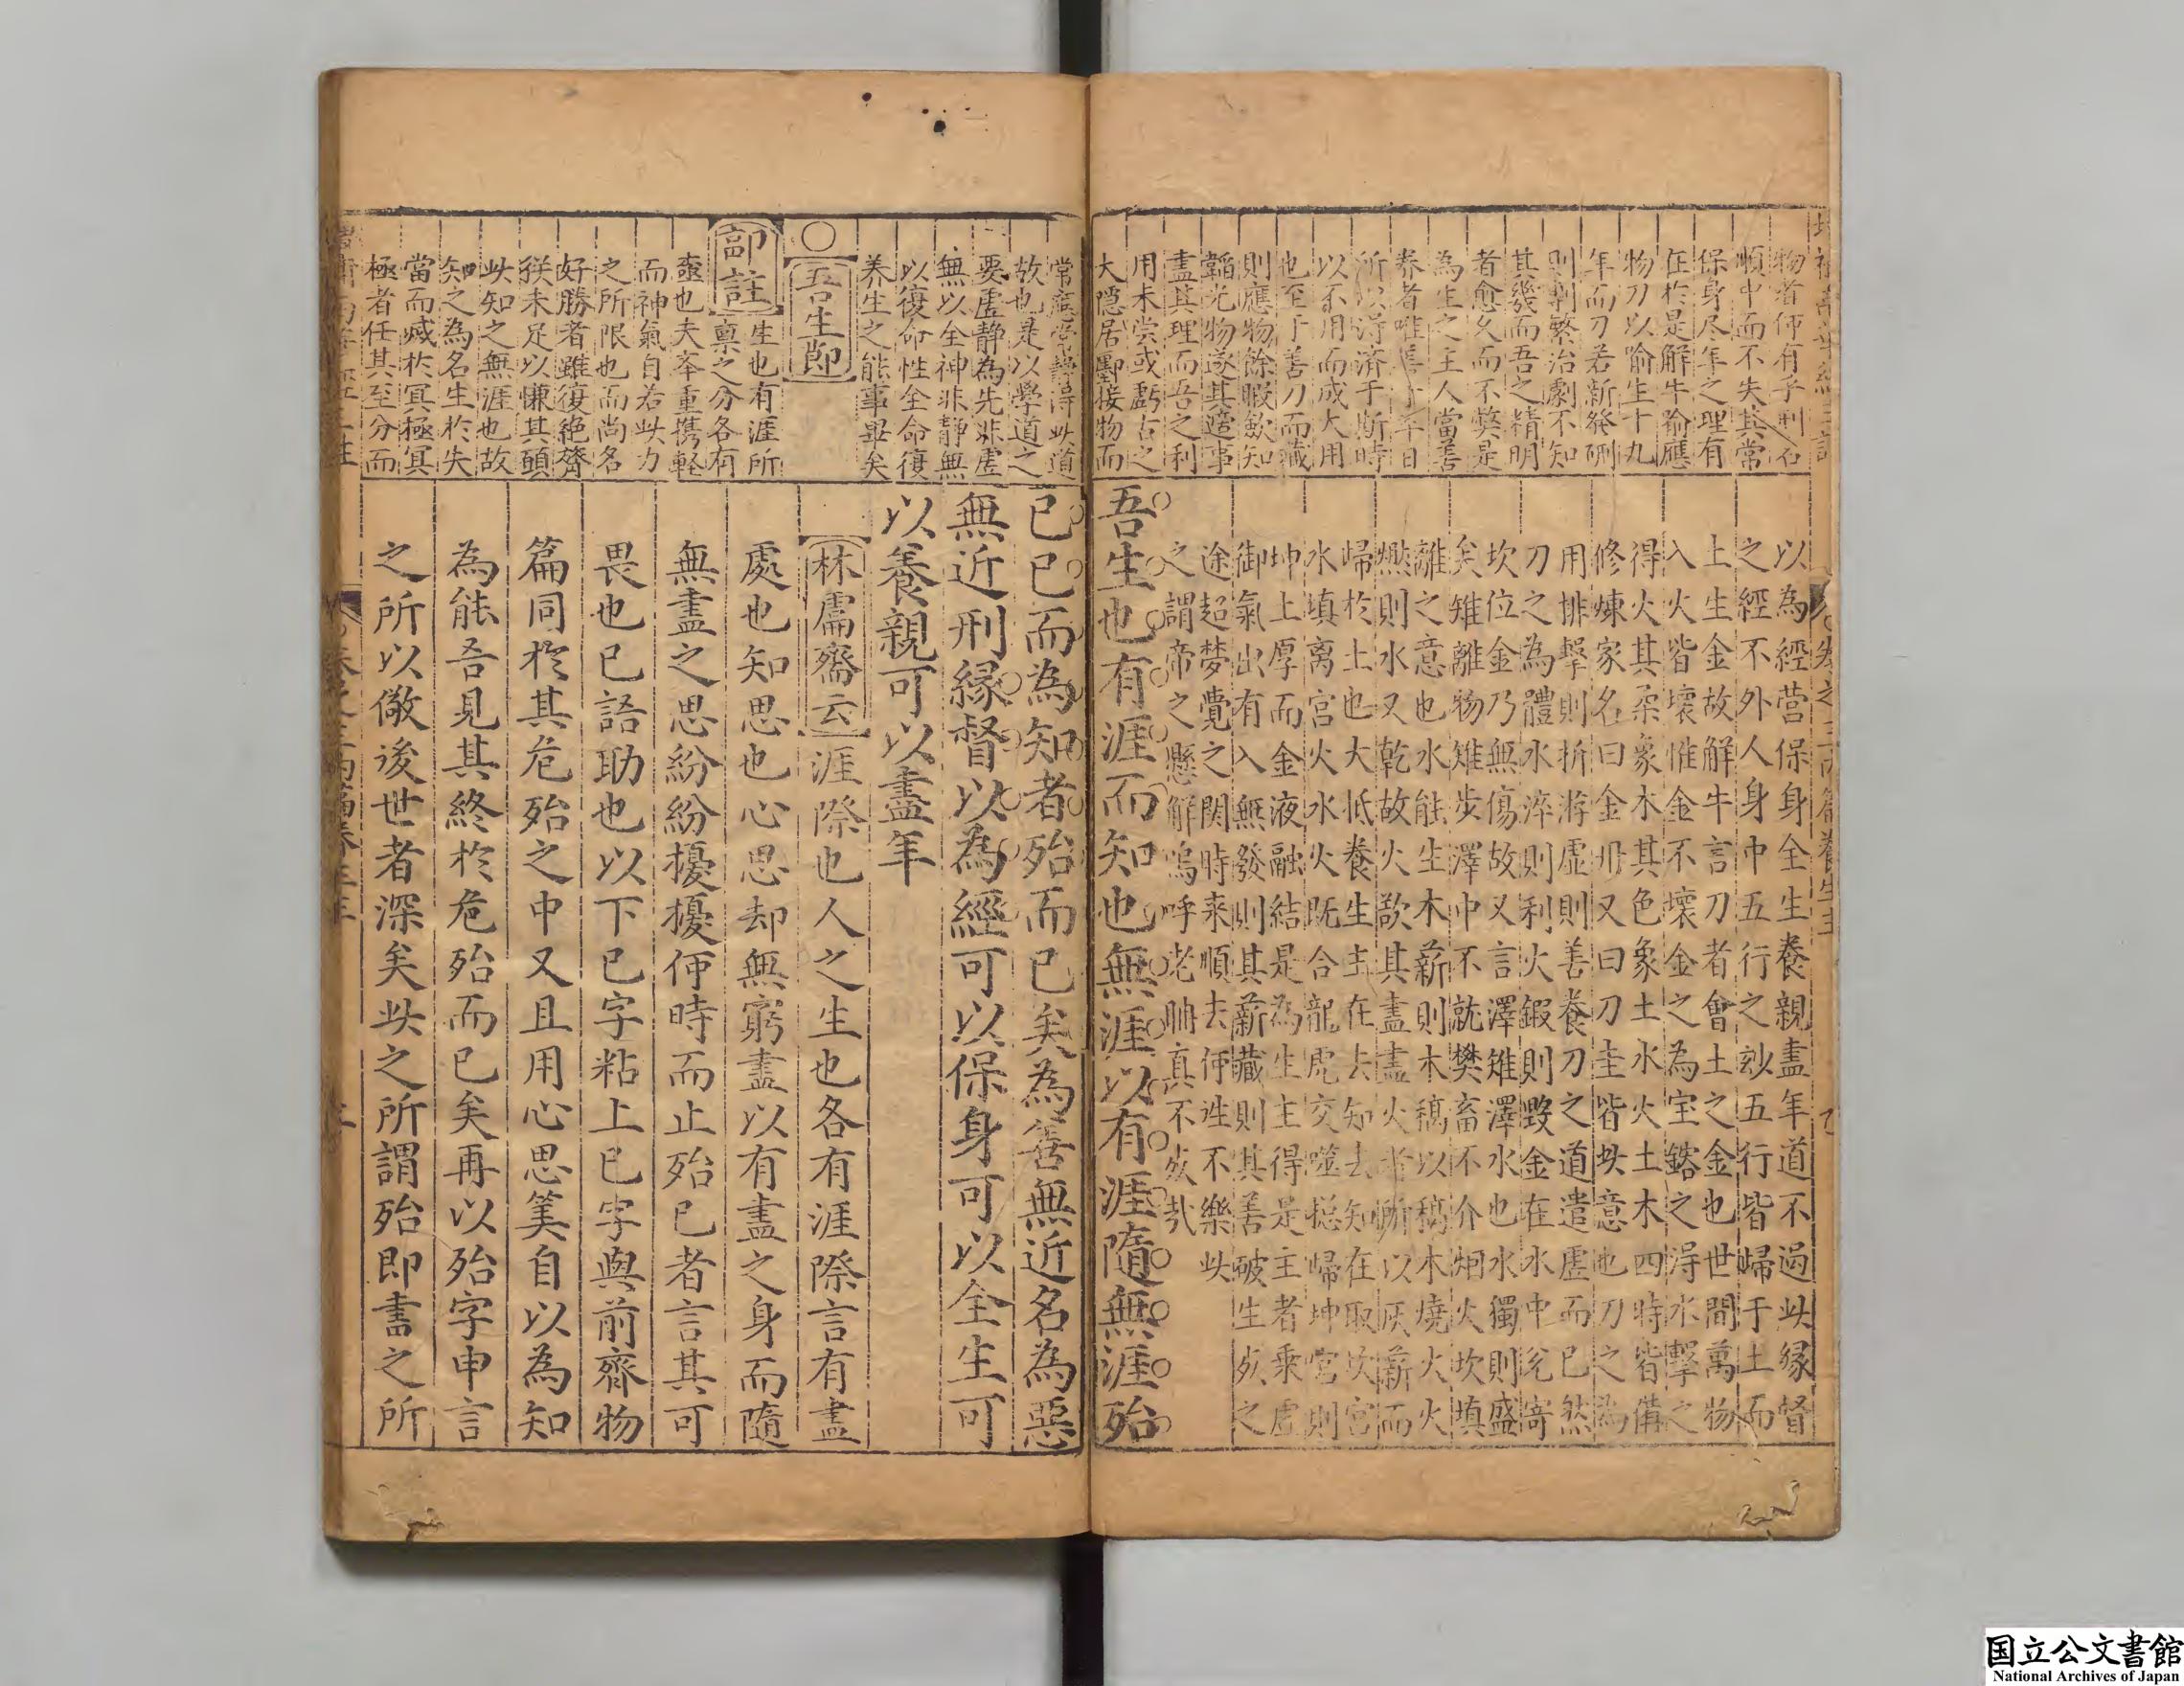 物者
順中而不失其常
保身尽年之理有
在於是解牛喻應
物刀以喻生十九
年而刀若新発硎
則剸繁治劇不知
其幾而吾之精明
者愈久而不獘是
為生之主人當善
养者唯
所以淂济于斯時
以不用而成大用
也至于善刀而藏
則應物餘暇歛知
韜光物遂其適事
盡其理而吾之利
用未尝或虧古之
大隠居墨接物而
以為經营保身全生養親盡年道不過此縁督
之經不外人身中五行之玅五行皆歸于土而
土生金故解牛言刀者會土之金也世間萬物
入火皆壞惟金不壞金之為宝鎔之淂水擊之
得火其柔象木其色象土水火土木四時皆備
修煉家名曰金丹又曰刀圭皆此意也刀之為
用排擊則折游虚則善養刀之道遣虚而已然
刀之為體水淬則利火鍜則毀金在水中兊寄
坎位金乃無傷故又言澤雉澤水也水獨則盛
矣雉離物雉步澤中不就樊畜不介炯火坎填
離之意也水能生木木薪則木稿以稿木燒火火
燃則水又乾故火欲其盡盡火者所以灰薪而
歸於土也大抵養生主在去知去知在取坎宮
水填离宫火水火既合龍虎交噬揔歸坤宮則
坤上厚而金液融結是為生主得是主者乘虚
御氣出有入無發則其薪藏則其善破生死之
途超梦覺之関時来順去何往不樂此
之謂帝之懸解嗚呼老聃真不死㢤
吾生也有涯而知也無涯以有涯隨無涯殆
常應常静得此道
故也是以學道之
要虚静為先非虚
無以全神非静無
以復命性全命復
养生之能事畢矣
〇吾生節
郭註 生也有涯所
禀之分各有
極也夫举重携軽
而神氣自若此力
之所限也而尚名
好勝者雖復絶膂
猶未足以慊其願
此知之無涯也故
知之為名生於失
當而滅於冥極冥
極者任其至分而
已已而為知者殆而已矣為善無近名為惡
無近刑縁督以為經可以保身可以全生可
以養親可以盡年
林鬳齋云 涯際也人之生也各有涯際言有盡
處也知思也心思却無窮盡以有盡之身而隨
無盡之思紛紛擾擾何時而止殆已者言其可
畏也已語助也以下已字粘上已字與前齊物
篇同於其危殆之中又且用心思筭自以為知
為能吾見其終於危殆而已矣再以殆字申言
之所以儆後世者深矣此之所謂殆即書之所
国立公文書館
National Archives of Japan